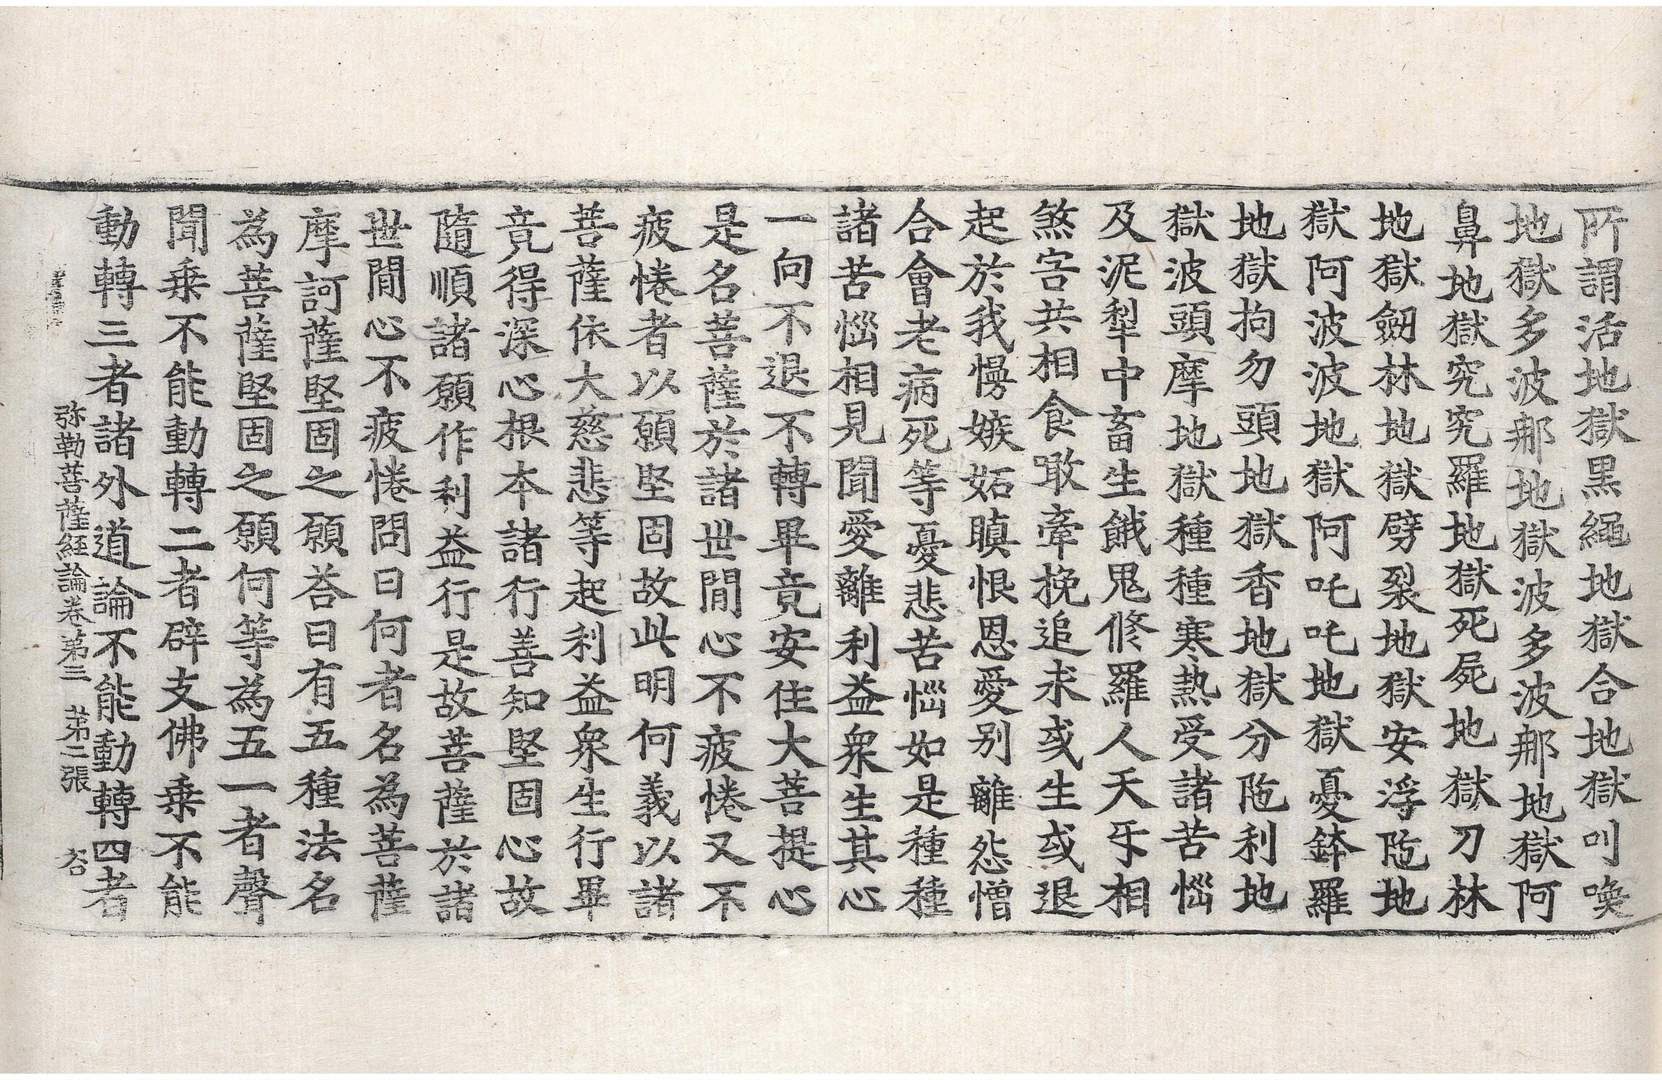 所謂活地獄黑繩地獄合地獄叫喚
地獄多波那地獄波多波那地獄阿
鼻地獄究究羅地獄死屍地獄刀林
地獄劒林地獄劈裂地獄安浮陁地
獄阿波波地獄阿吒吒地獄憂鉢羅
地獄拘勿頭地獄香地獄分陁利地
獄波頭摩地獄種種寒熱受諸苦惱
及泥犁中畜生餓鬼修羅人天牙相
煞害共相食噉牽挽追求或生或退
起於我慢嫉妬瞋恨恩愛別離怨憎
合會老病死等憂悲苦惱如是種種
諸苦惱相見聞愛離利益衆生其心
一向不退不轉畢竟安住大菩提心
是名菩薩於諸世間心不疲惓又不
疲惓者以願堅固故此明何義以諸
菩薩依大慈悲等起利益衆生行畢
竟得深心根本諸行善知堅固心故
隨順諸願作利益行是故菩薩於諸
世間心不疲惓問曰何者名為菩薩
摩訶薩堅固之願荅曰有五種法名
為菩薩堅固之願何等為五一者聲
聞乘不能動轉二者辟支佛乘不能
動轉三者諸外道論不能動轉四者
弥勒菩薩經論卷第三 第二張